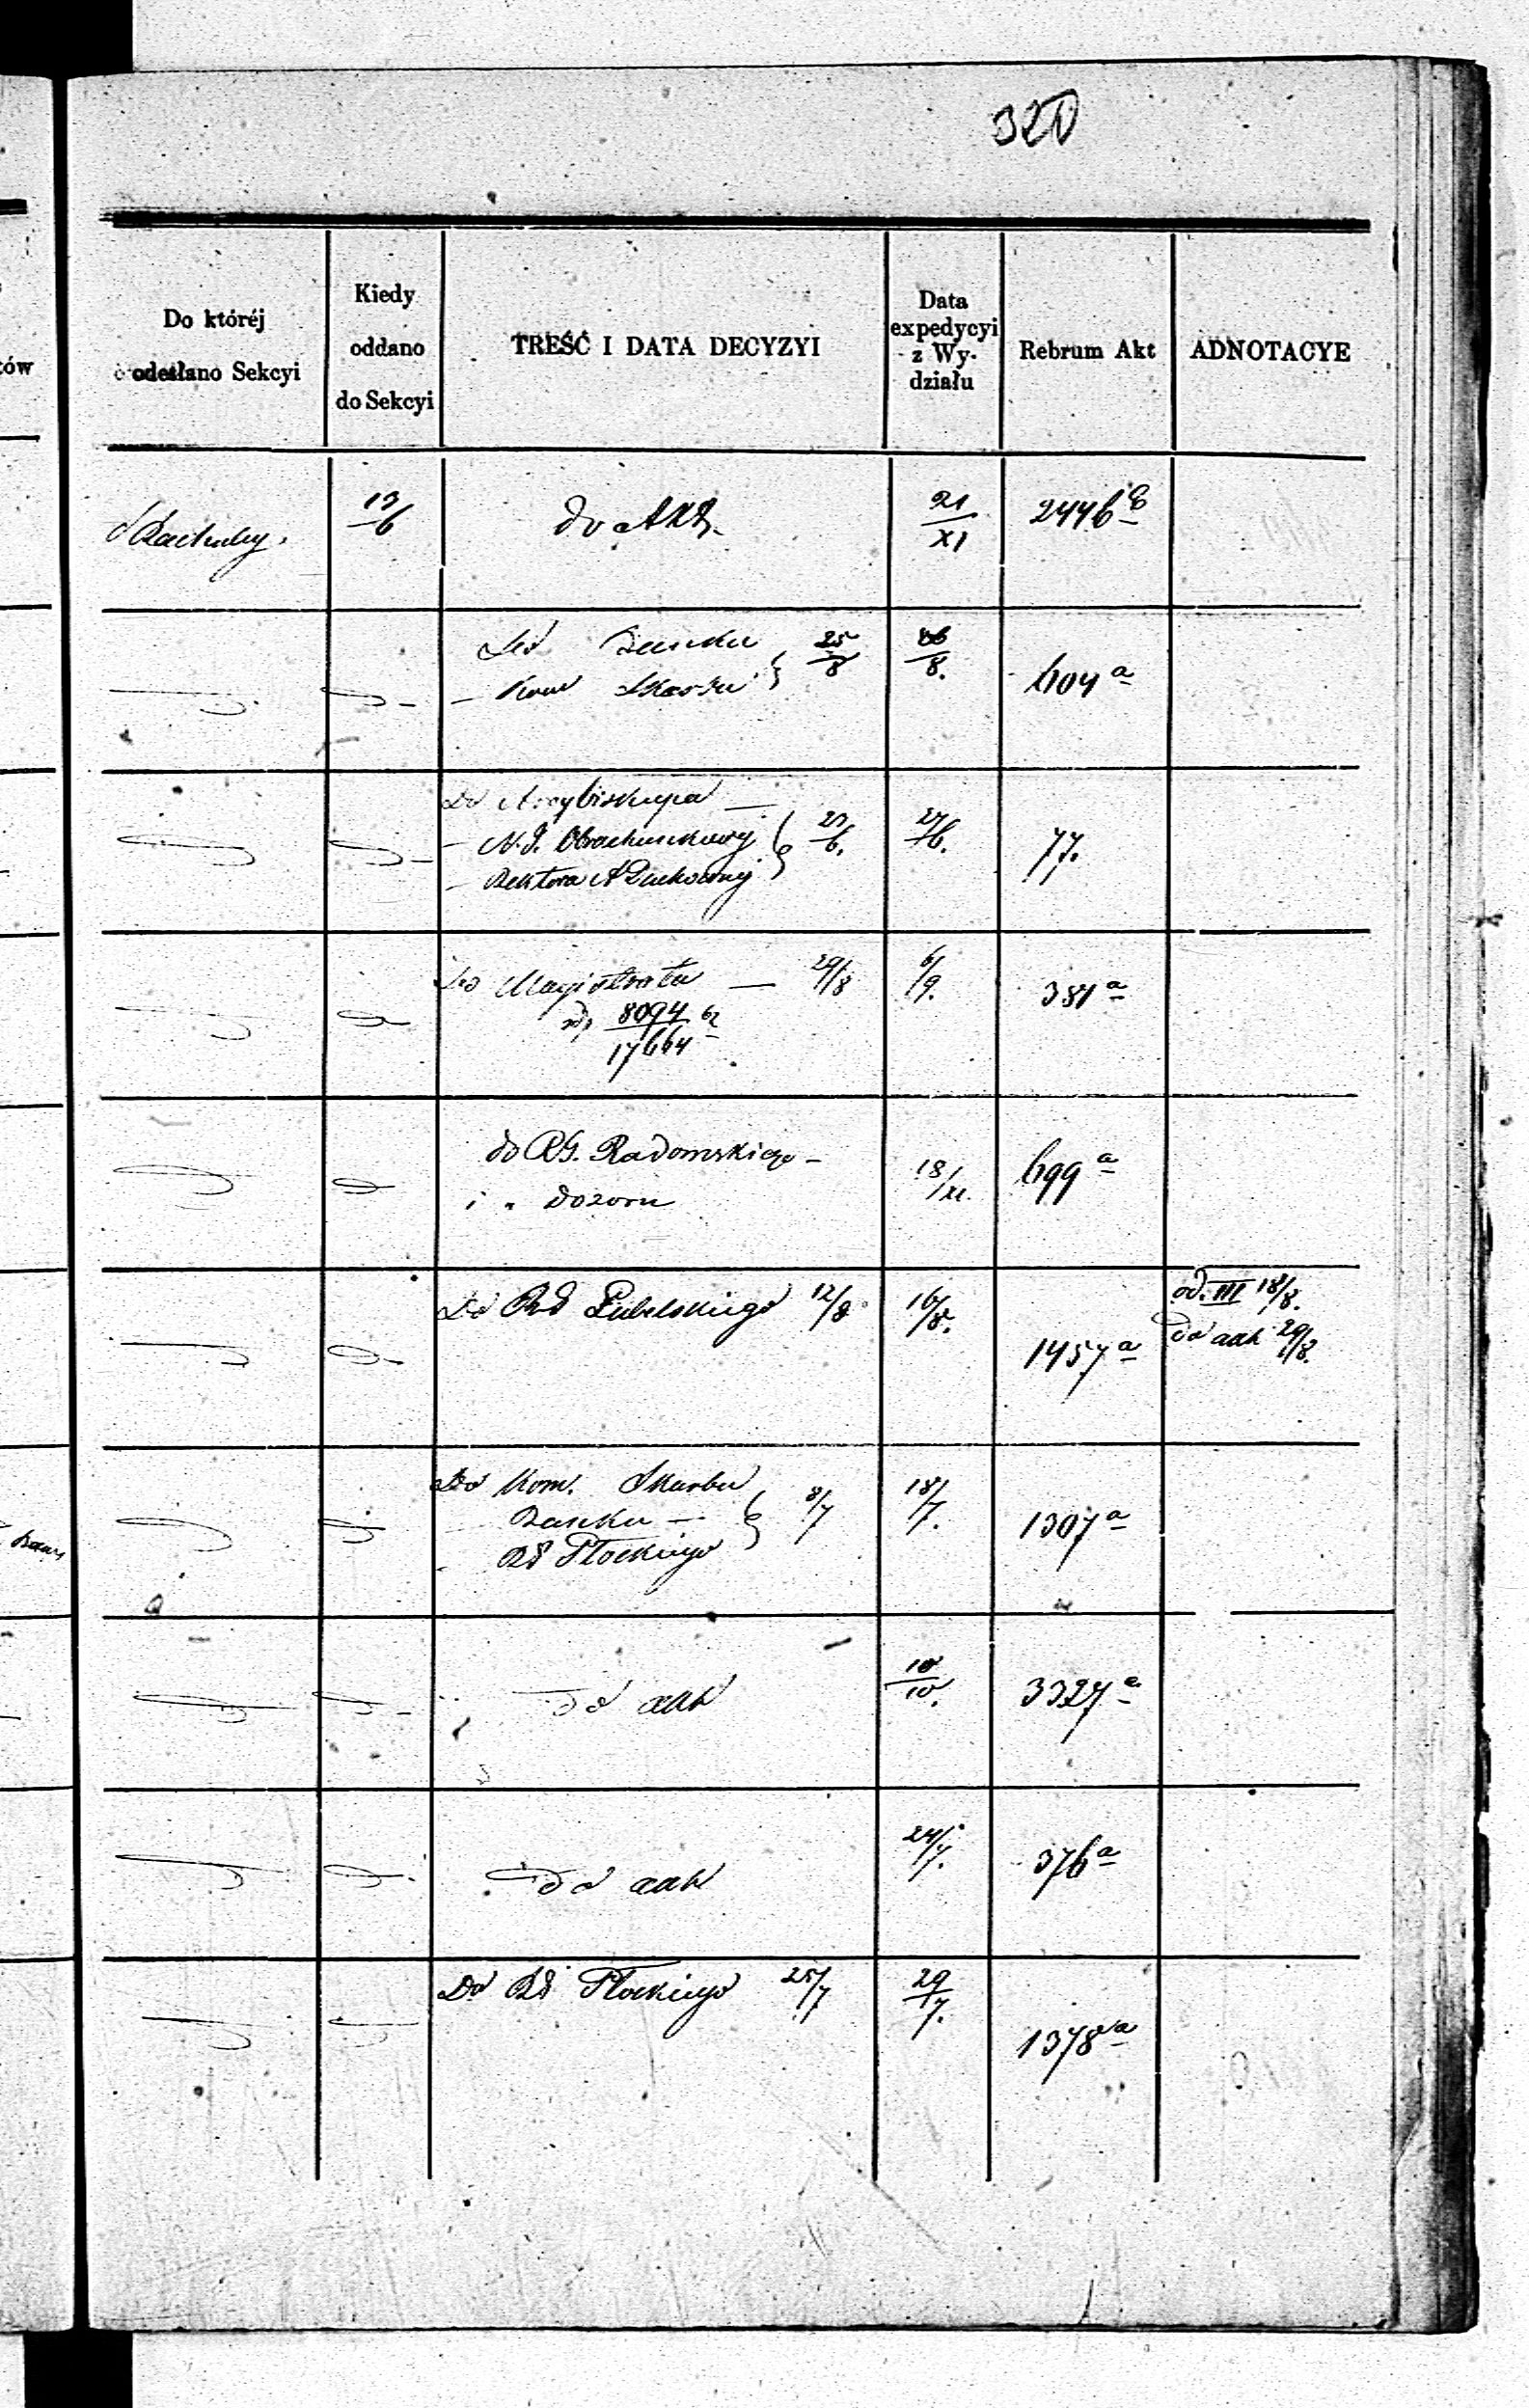 320
Do któréj
odesłano Sekcyi
Kiedy
oddano
do Sekcyi
TREŚĆ I DATA DECYZYI
Data
expedycyi
z Wy-
działu
Rebrum Akt
ADNOTACYE
ów
Rachuby.
13/6
do Akt.
21/XI
2446 b
Do Banku
25/8
/8.
- Kom Skarbu
604 a
Do Arcybiskupa —
- N. I. Obrachunkowej
27/6.
77.
- Rektora A Duchownej
Do Magistratu — 29/8
6/9.
381 a
ad 8094/17664
do RG. Radomskiego -
18/XI.
699 a
i " Dozoru
Do Rd Lubelskiego 12/8
16/8.
1457 a
od. III 18/8.
do akt 29/8.
Do Kom. Skarbu
Banku —
8/7
18/7.
1307 a
Rd Płockiego
do akt
10/10.
3327 a
do akt
24/7.
376 a
Do Rd Płockiego 25/7
29/7.
1378 a